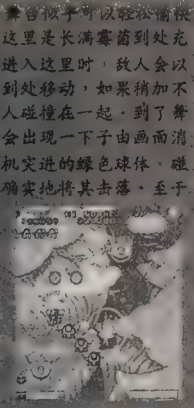 舞台似乎可以轻松愉快
这里是长满霉菌到处充
进入这里时，敌人会以
到处移动，如果稍加不
人碰撞在一起。到了舞
会出现一下子由画而消
机突进的绿色球体。碰
确实地将其击落。至于